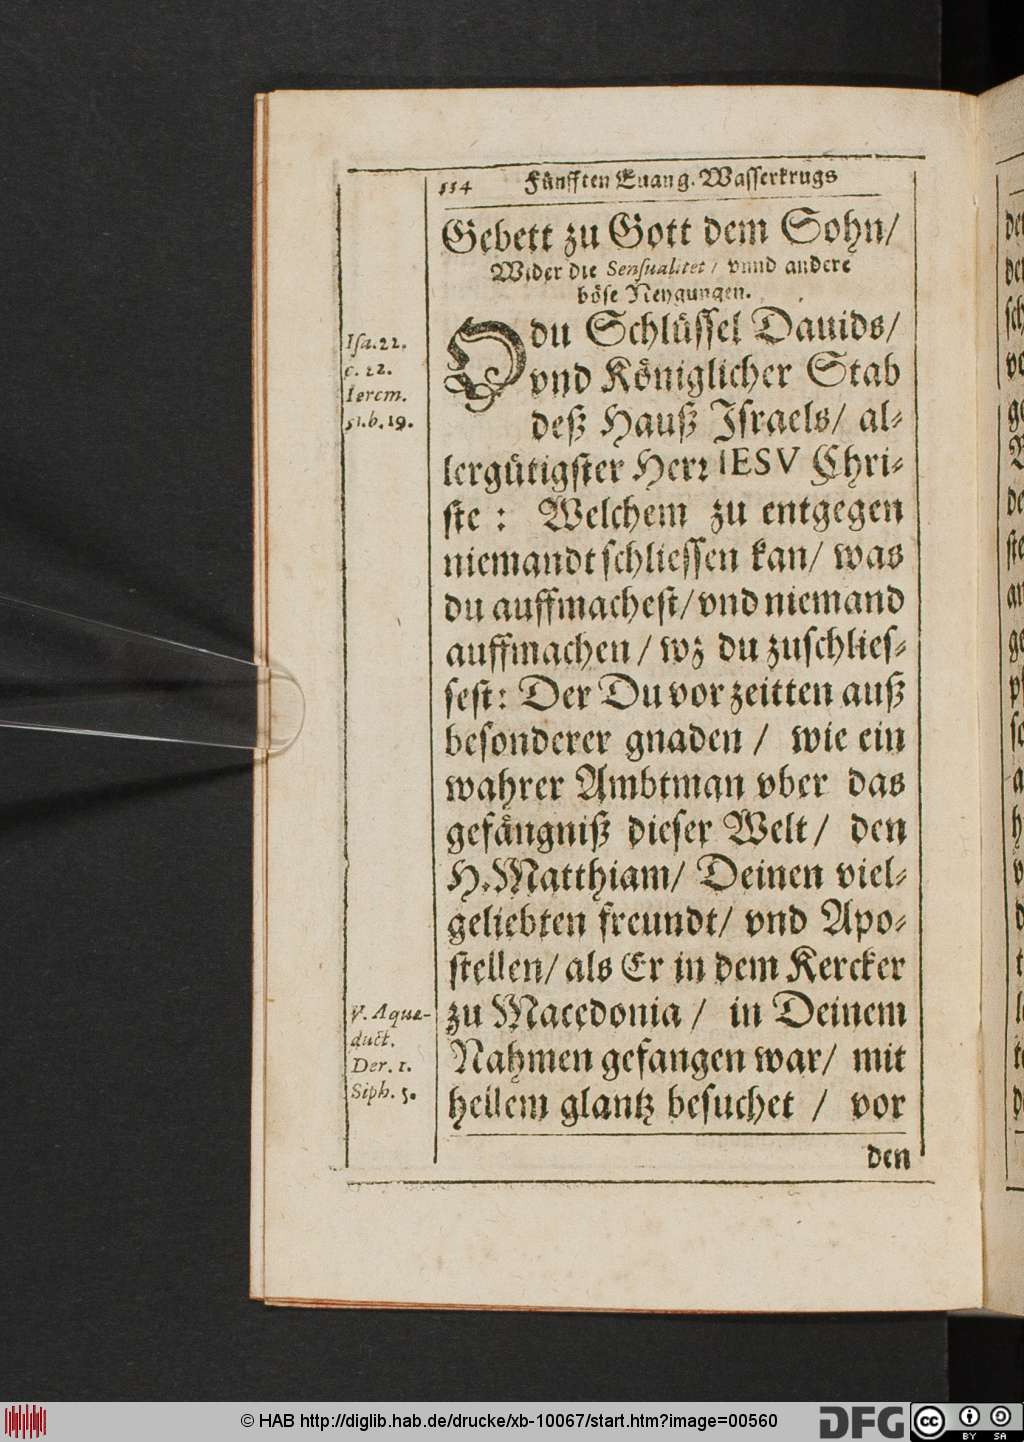 554 Fünfften Euang. Wasserkrugs
Gebett zu Gott dem Sohn/
Wider die Sensualitet/ vnnd andere
böse Neygungen.
O du Schlüssel Dauids/
vnd Königlicher Stab
deß Hauß Israels/ al-
lergütigster Herr IESV Chri-
ste: Welchem zu entgegen
niemandt schliessen kan/ was
du auffmachest/ vnd niemand
auffmachen/ wz du zuschlies-
sest: Der Du vor zeitten auß
besonderer gnaden/ wie ein
wahrer Ambtman vber das
gefängniß dieser Welt/ den
H. Matthiam/ Deinen viel-
geliebten freundt/ vnd Apo-
stellen/ als Er in dem Kercker
zu Macedonia/ in Deinem
Nahmen gefangen war/ mit
hellem glantz besuchet/ vor
den
Isa. 22.
c. 22.
Ierem.
51. b. 19.
V. Aque-
duct.
Der. 1.
Siph. 5.
© HAB http://diglib.hab.de/drucke/xb-10067/start.htm?image=00560
DFG
cc
BY SA